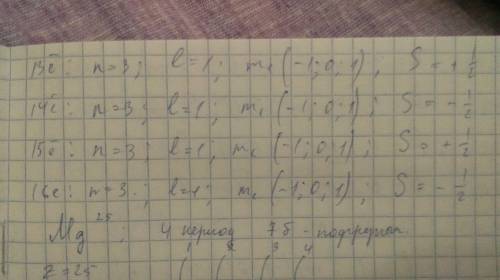 13ē: n=3; l=1; m₁ (-1;0;1); S=+½
14ē: n=3; l=1; m₁ (-1;0;1); S=-½
15ē: n=3; l=1; m₁ (-1;0;1); S=+½
16ē: n=3; l=1; m₁ (-1;0;1); S=-½
Mg²⁵; 4 период 7б-подгруппа
1 2 3 4
Z=25 ( ( ( (